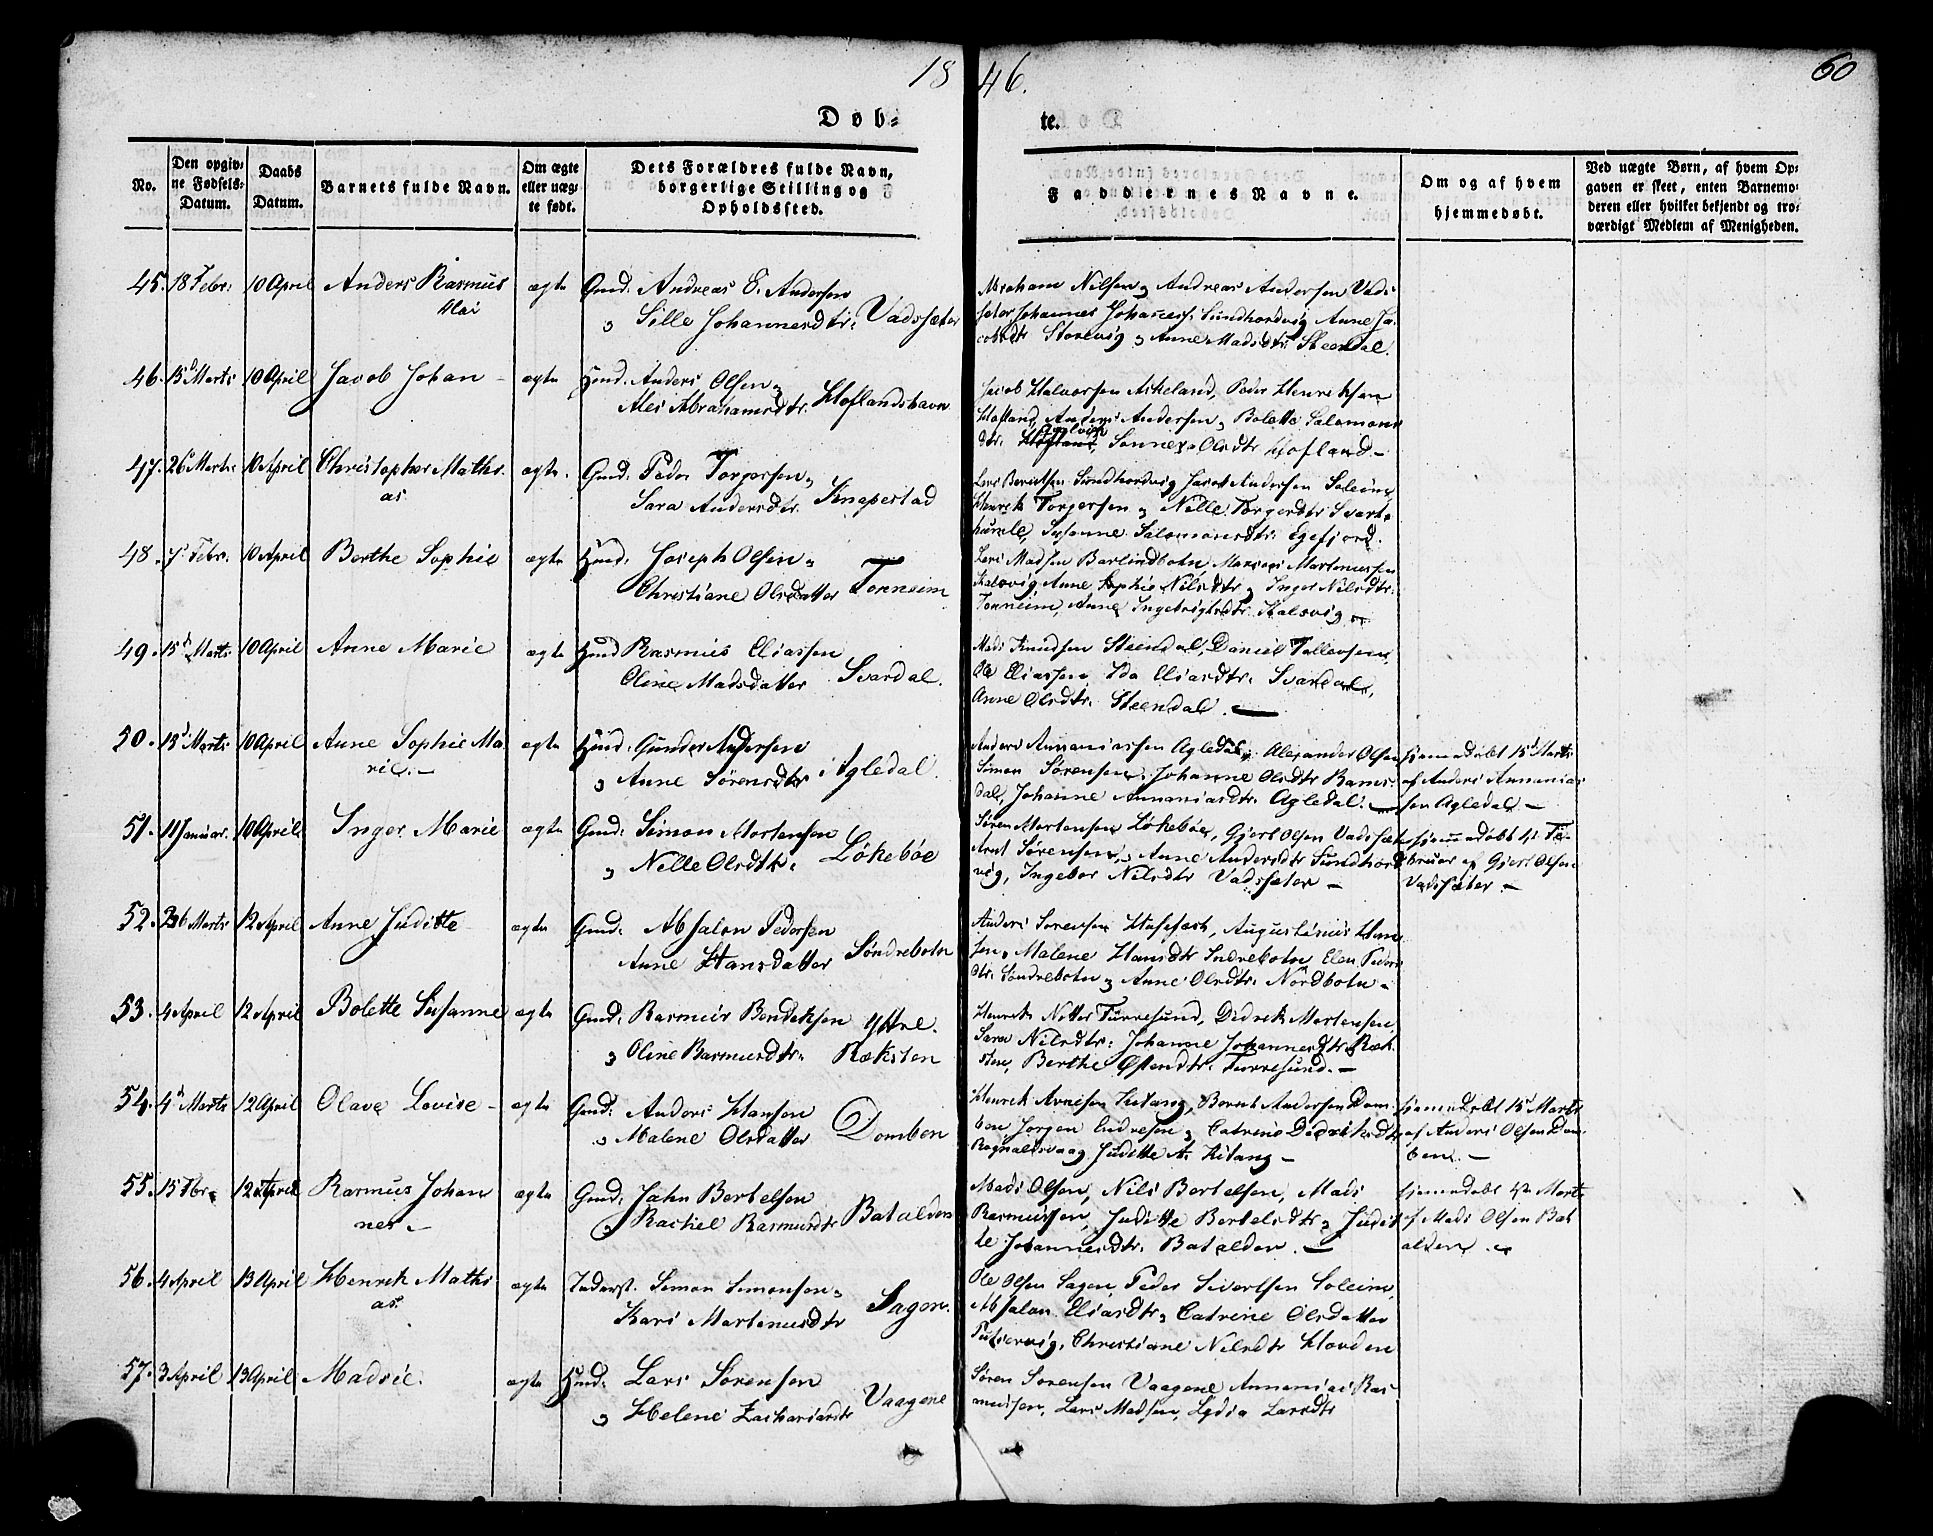 1846.
60
Døb-
te.
No.
Den opgiv-
ne Fødsels-
Datum.
Daabs
Datum.
Barnets fulde Navn.
Om ægte
eller uæg-
te født.
Dets Forældres fulde Navn,
borgerlige Stilling og
Opholdssted.
Faddernes Navne.
Om og af hvem
hjemmedøbt.
Ved uægte Børn, af hvem Op-
gaven er skeet, enten Barnemo-
deren eller hvilket bekjendt og tro-
værdigt Medlem af Menigheden.
45. 18 Febr. 10 April Anders Rasmus
ægte Gmd. Andreas E. Andersen
Sille Johannesdtr. Vadsæter
Abraham Nilsen, Andreas Andersen Vad-
sæter Johannes Johanness. Sundhordvig Anne Ja-
cobsdtr Storevig, Anne Madsdtr. Steendal.
46. 15 Marts 10 April Jacob Johan
ægte Hmd. Anders Olsen
Ales Abrahamsdtr. Hoflandshavn
Jacob Halvorsen Askeland, Peder Henriksen
Hofland, Anders Andersen, Bolette Salomons
dtr. Hofland, Olsdtr Hofland
47. 26 Marts 10 April Christopher Mathi-
as
ægte Gmd. Peder Torgersen
Sara Andersdtr. Knapestad
Lars Berentsen Sundhordvig Jacob Andersen Soleim
Henrik Torgersen, Nille Torgersdtr Svart-
humle, Susanne Salomonsdtr. Egefjord.
48. 7 Febr. 10 April Berthe Sophie
ægte Hmd. Joseph Olsen
Christiane Olsdatter Tonneim
Lars Madsen Barlindbotn Martinussen
Kalsvig Anne Sophie Nilsdtr, Inger Nilsdtr.
Tonneim, Anne Ingebrigtsdtr. Kalsvig
49. 15 Marts 10 April Anne Marie
ægte Hmd Rasmus Eliassen
Oline Madsdatter Svardal.
Mads Knudsen Steendal, Daniel Tollevsen,
Ole Eliassen, Ida Eliasdtr. Svardal,
Anne Olsdtr. Steendal.
50. 13 Marts 10 April Anne Sophie Ma-
rie.
ægte Hmd. Gunder Andersen
Anne Sørensdtr. Agledal.
Anders Annaniassen Agledal, Alexander Olsen
Simon Sørensen, Johanne Olsdtr Rams-
dal, Johanne Annaniasdtr. Agledal.
hjemmedøbt 15 Marts
af Anders Annanias-
sen Agledal.
51. 11 Januar. 10 April Inger Marie
ægte Gmd. Simon Mortensen
Nille Olsdtr. Løkebøe
Søren Mortensen Løkebøe, Gjert Olsen Vadsæter
Arnt Sørensen, Anne Andersdtr Sundhord-
vig, Ingebor Nilsdtr Vadsæter
hjemmedøbt Fe-
bruar af Gjert Olsen
Vadsæter.
52. 26 Marts 12 April Anne Juditte
ægte Gmd. Absalon Pedersen
Anne Hansdatter Søndrebotn
Anders Sørensen Augustinus Han-
sen, Malene Hansdtr Indrebotn Elen Peders
dtr. Søndrebotn, Anne Olsdtr. Nordbotn
53. 4 April 12 April Bolette Susanne
ægte Gmd. Rasmus Bendiksen Yttre
Oline Rasmusdtr. Ræksten
Henrik Furresund, Didrik Mortensen
Sara Nilsdtr. Johanne Johannesdtr Ræk-
sten, Berthe Ostendtr. Furresund.
54. 4 Marts 12 April Olave Lovise
ægte Gmd. Anders Hansen
Malene Olsdatter Domben
Henrik Arnesen Hitang, Bernt Andersen Dom-
ben Jørgen Endresen, Catrine Didriksdtr.
Rognaldsvaag Juditte A. Hitang
hjemmedøbt 15 Marts
af Anders Olsen Dom-
ben.
55. 15 Fbr. 12 April Rasmus Johan-
nes
ægte Gmd. Jahn Bertelsen
Rachel Rasmusdtr Batalden
Mads Olsen, Nils Bertelsen, Mads
Rasmussen, Juditte Bertelsdtr, Judit-
te Johannesdtr. Batalden.
hjemmedøbt Marts
af Mads Olsen Bat-
alden.
56. 4 April 13 April Henrik Mathi-
as.
ægte Inderst. Simon Simonsen
Kari Martinusdtr Sagen.
Ole Olsen Sagen, Peder Sivertsen Soleim,
Absalon Eliasdtr, Catrine Olsdatter
Christiane Nilsdtr Hovden
57. 3 April 13 April Madsie.
ægte Hmd. Lars Sørensen
Helene Zachariasdtr Vaagene
Søren Sørensen Vaagene Annanias Ras-
mussen, Lars Madsen, Lydia Larsdtr